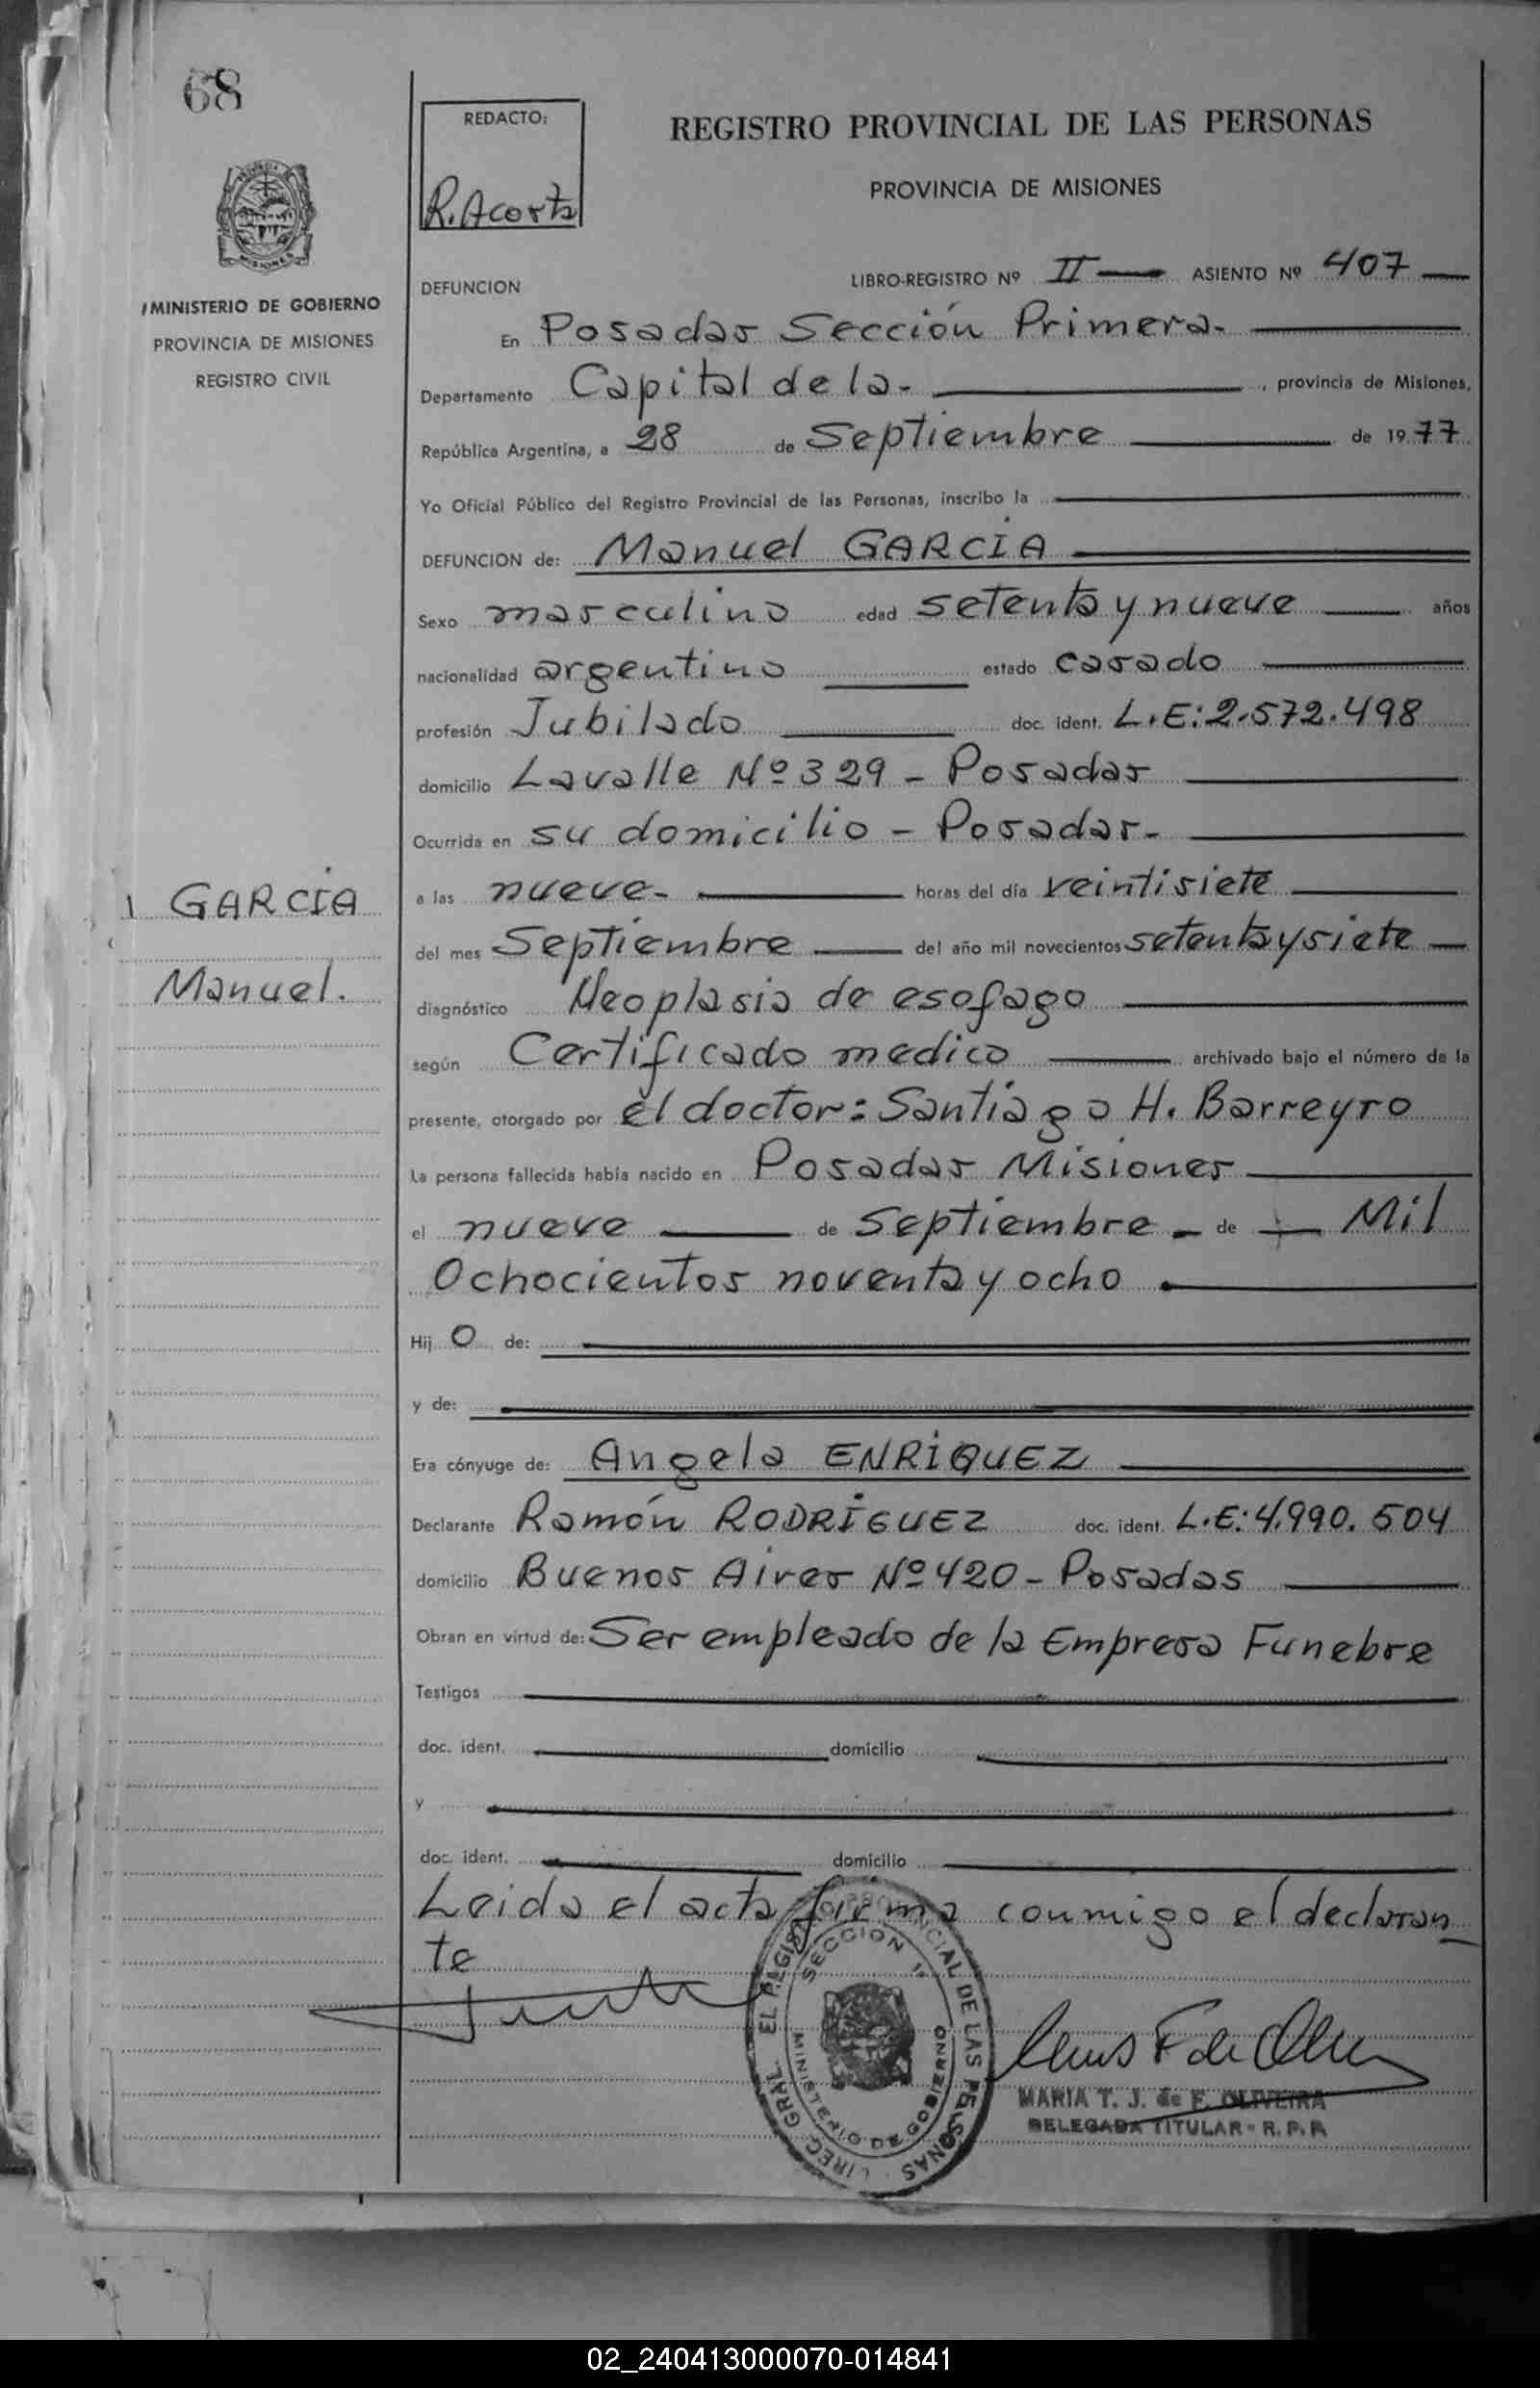 68
REDACTO:
R. Acosta
REGISTRO PROVINCIAL DE LAS PERSONAS
PROVINCIA DE MISIONES
MISIONES
MINISTERIO DE GOBIERNO
PROVINCIA DE MISIONES
REGISTRO CIVIL
DEFUNCION LIBRO-REGISTRO Nº II ASIENTO Nº 407
En Posadas Sección Primera.
Departamento Capital de la. , provincia de Misiones,
República Argentina, a 28 de Septiembre de 1977
Yo Oficial Público del Registro Provincial de las Personas, inscribo la
DEFUNCION de: Manuel GARCÍA
Sexo masculino edad setenta y nueve años
nacionalidad argentino estado casado
profesión Jubilado doc. ident. L.E: 2.572.498
domicilio Lavalle Nº 329 - Posadas
Ocurrida en su domicilio - Posadas.
a las nueve. horas del día veintisiete
del mes Septiembre del año mil novecientos setenta y siete
diagnóstico Neoplasia de esofago
según Certificado medico archivado bajo el número de la
presente, otorgado por el doctor: Santiago H. Barreyro
La persona fallecida había nacido en Posadas Misiones
el nueve de Septiembre - de Mil
Ochocientos noventa y ocho
Hij o de:
y de:
Era cónyuge de: Angela ENRÍQUEZ
Declarante Ramón RODRÍGUEZ doc. ident. L.E: 4.990.504
domicilio Buenos Aires Nº 420 - Posadas
Obran en virtud de: Ser empleado de la Empresa Funebre
Testigos
doc. ident. domicilio
y
doc. ident. domicilio
Leida el acta firma conmigo el declaran
te
GARCÍA
Manuel.
SECCION 1ª
MINISTERIO DE GOBIERNO
MARIA T. J. de F. OLIVEIRA
DELEGADA TITULAR - R. P. P.
02_240413000070-014841